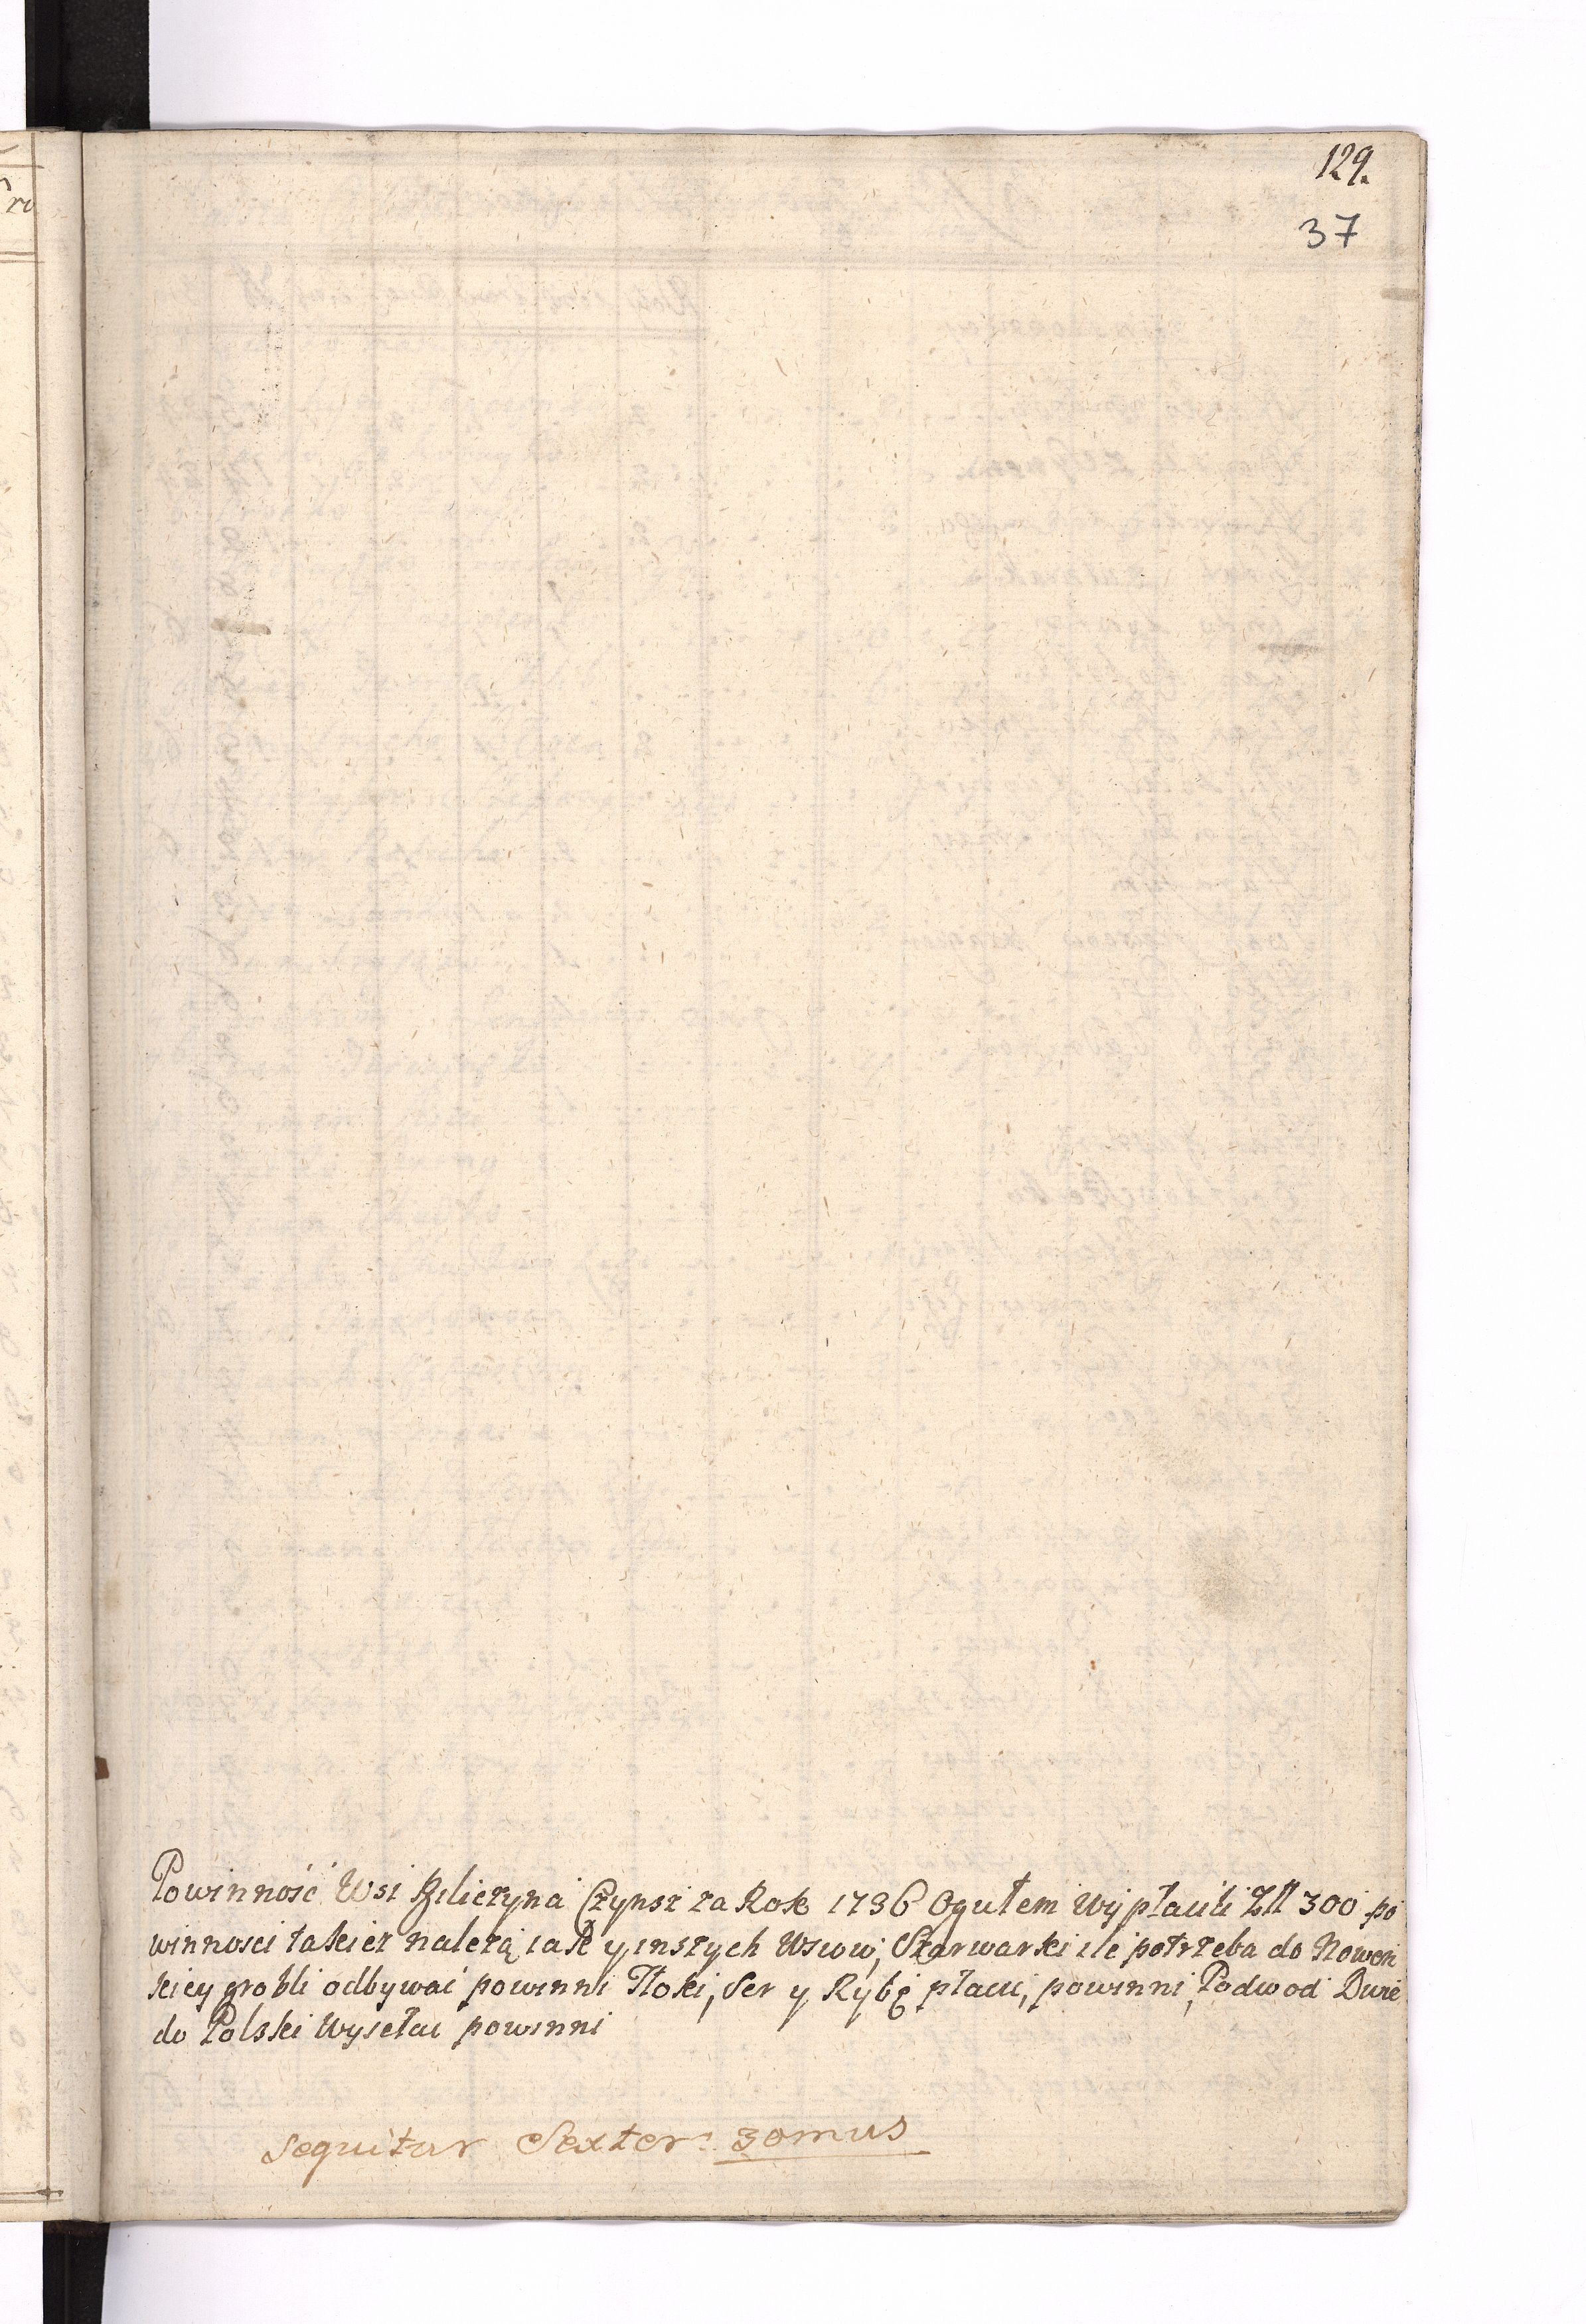 129.
37
Powinność Wsi Bzliczyna Czynsz za Rok 1736 Ogułem Wypłacili Złł 300 po
winnosci takiez nalezą iak y inszych Wsiow, Szarwarki ile potrzeba do Nowen
skiey grobli odbywać powinni Tłoki, Ser y Rybę płacić, powinni, Podwod Dwie
do Polski Wysełać powinni
Sequitur Sexter: 30mus